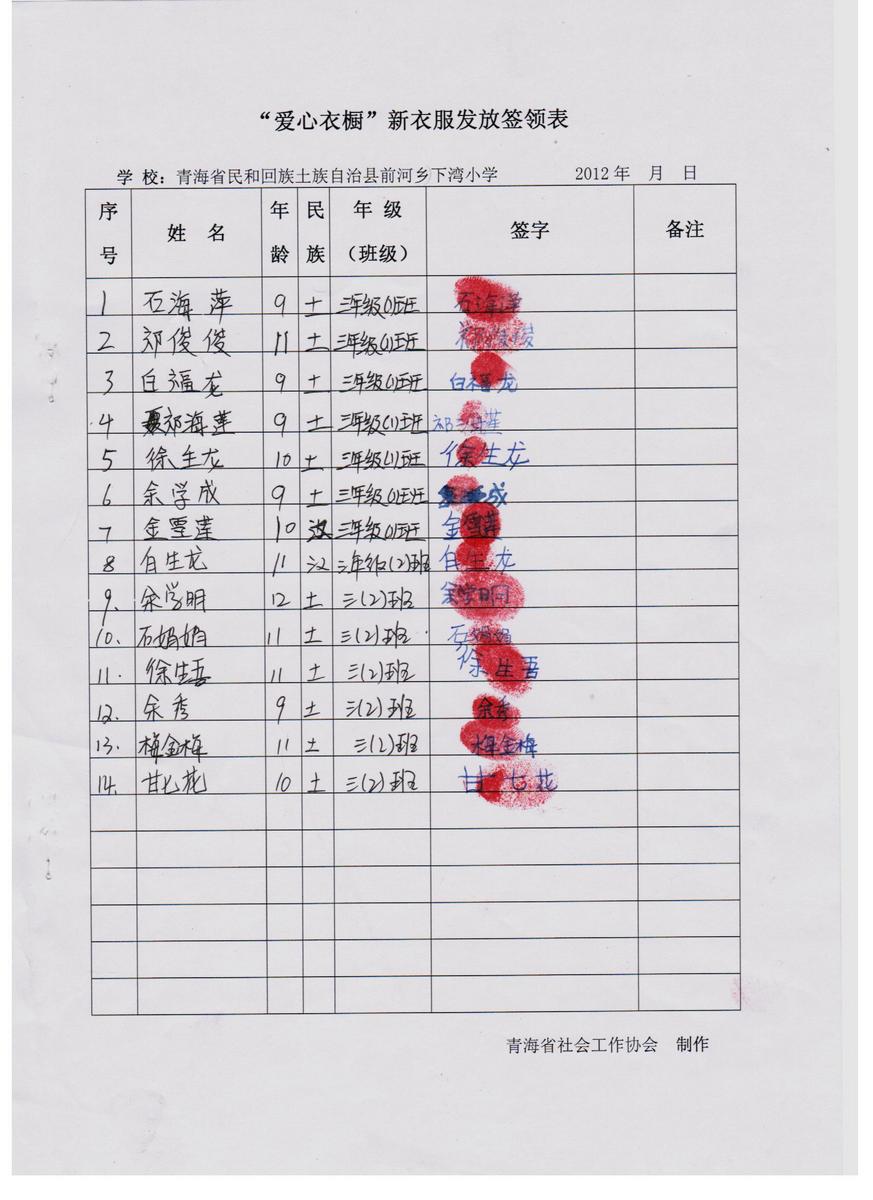 “爱心衣橱”新衣服发放签领表
学 校：青海省民和回族土族自治县前河乡下湾小学 2012年 月 日
序号 姓 名 年龄 民族 年 级（班级） 签字 备注
1 石海萍 9 土 三年级(1)班 石海萍
2 祁俊俊 11 土 三年级(1)班 祁俊俊
3 白福龙 9 土 三年级(1)班 白福龙
4 祁海莲 9 土 三年级(1)班 祁海莲
5 徐生龙 10 土 三年级(1)班 徐生龙
6 余学成 9 土 三年级(1)班 成
7 金雪莲 10 汉 三年级(1)班 金雪莲
8 白生龙 11 汉 三年级(2)班 白生龙
9. 余学明 12 土 三(2)班 余学明
10. 石娟娟 11 土 三(2)班 石娟娟
11. 徐生吾 11 土 三(2)班 徐生吾
12. 余秀 9 土 三(2)班 余秀
13. 梅金梅 11 土 三(2)班 梅金梅
14. 甘七花 10 土 三(2)班 甘七花
青海省社会工作协会 制作